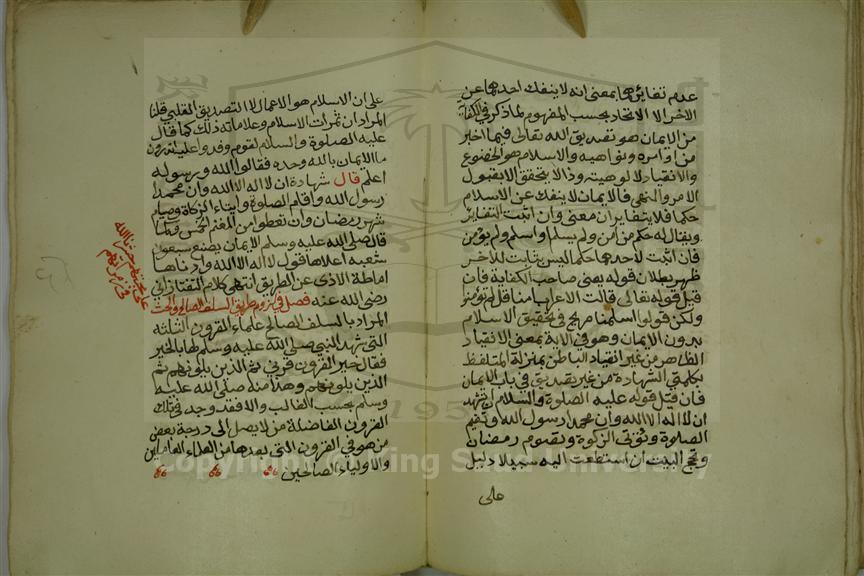 عدم تغائرهما بمعنى انه لا ينفك احدهما عن
الاخر لا الاتحاد بحسب المفهوم لما ذكر في الكفاية
من الايمان هو تصديق الله تعالى فيما اخبر
من اوامره ونواهيه والاسلام هو الخضوع
والانقياد لالوهيته وذا لا يتحقق الا بقبول
الامر والنهي فالايمان لا ينفك عن الاسلام
حكما فلا يتغايران معنى وان اثبت التغاير
ويقال له حكم من امن ولم يسلم او اسلم ولم يؤمن
فان اثبت لاحدهما حكما ليس بثابت للاخر
ظهر بطلان قوله يعنى صاحب الكفاية فان
قيل قوله تعالى قالت الاعراب امنا قل لم تؤمنوا
ولكن قولوا اسلمنا صريح في تحقيق الاسلام
بدون الايمان وهو في الاية بمعنى الانقياد
الظاهر من غير انقياد الباطن بمنزلة المتلفظ
بكلمتي الشهادة من غير تصديق في باب الايمان
فان قيل قوله عليه الصلوة والسلام ان تشهد
ان لا اله الا الله وان محمدا رسول الله وتقيم
الصلوة وتؤتى الزكوة وتصوم رمضان
وتحج البيت ان استطعت اليه سبيلا دليل
على
على ان الاسلام هو الاعمال لا التصديق القلبي قلنا
المراد ان ثمرات الاسلام وعلاماته ذلك كما قال
عليه الصلوة والسلام لقوم وفدوا عليه اتدرون
ما الايمان بالله وحده فقالوا الله ورسوله
اعلم قال شهادة ان لا اله الا الله وان محمدا
رسول الله واقام الصلوة وايتاء الزكاة وصيام
شهر رمضان وان تعطوا من المغنم الخمس وكما
قال صلى الله عليه وسلم الايمان بضع وسبعون
شعبه اعلاها قول لا اله الا الله وادناها
اماطة الاذى عن الطريق انتهى كلام التفتازاني
رضى الله عنه فصل في لزوم طريق السلف الصالح والحث
المراد بالسلف الصالح علماء القرون الثلثه
التي شهد النبي صلى الله عليه وسلم لها بالخير
فقال خير القرون قرني ثم الذين يلونهم ثم
الذين يلونهم وهذا منه صلى الله عليه
وسلم بحسب الغالب والا فقد وجد في تلك
القرون الفاضلة من لا يصل الى درجة بعض
من هو في القرون التي بعدها من العلماء العاملين
والاولياء الصالحين
Copyright © King Saud University
195